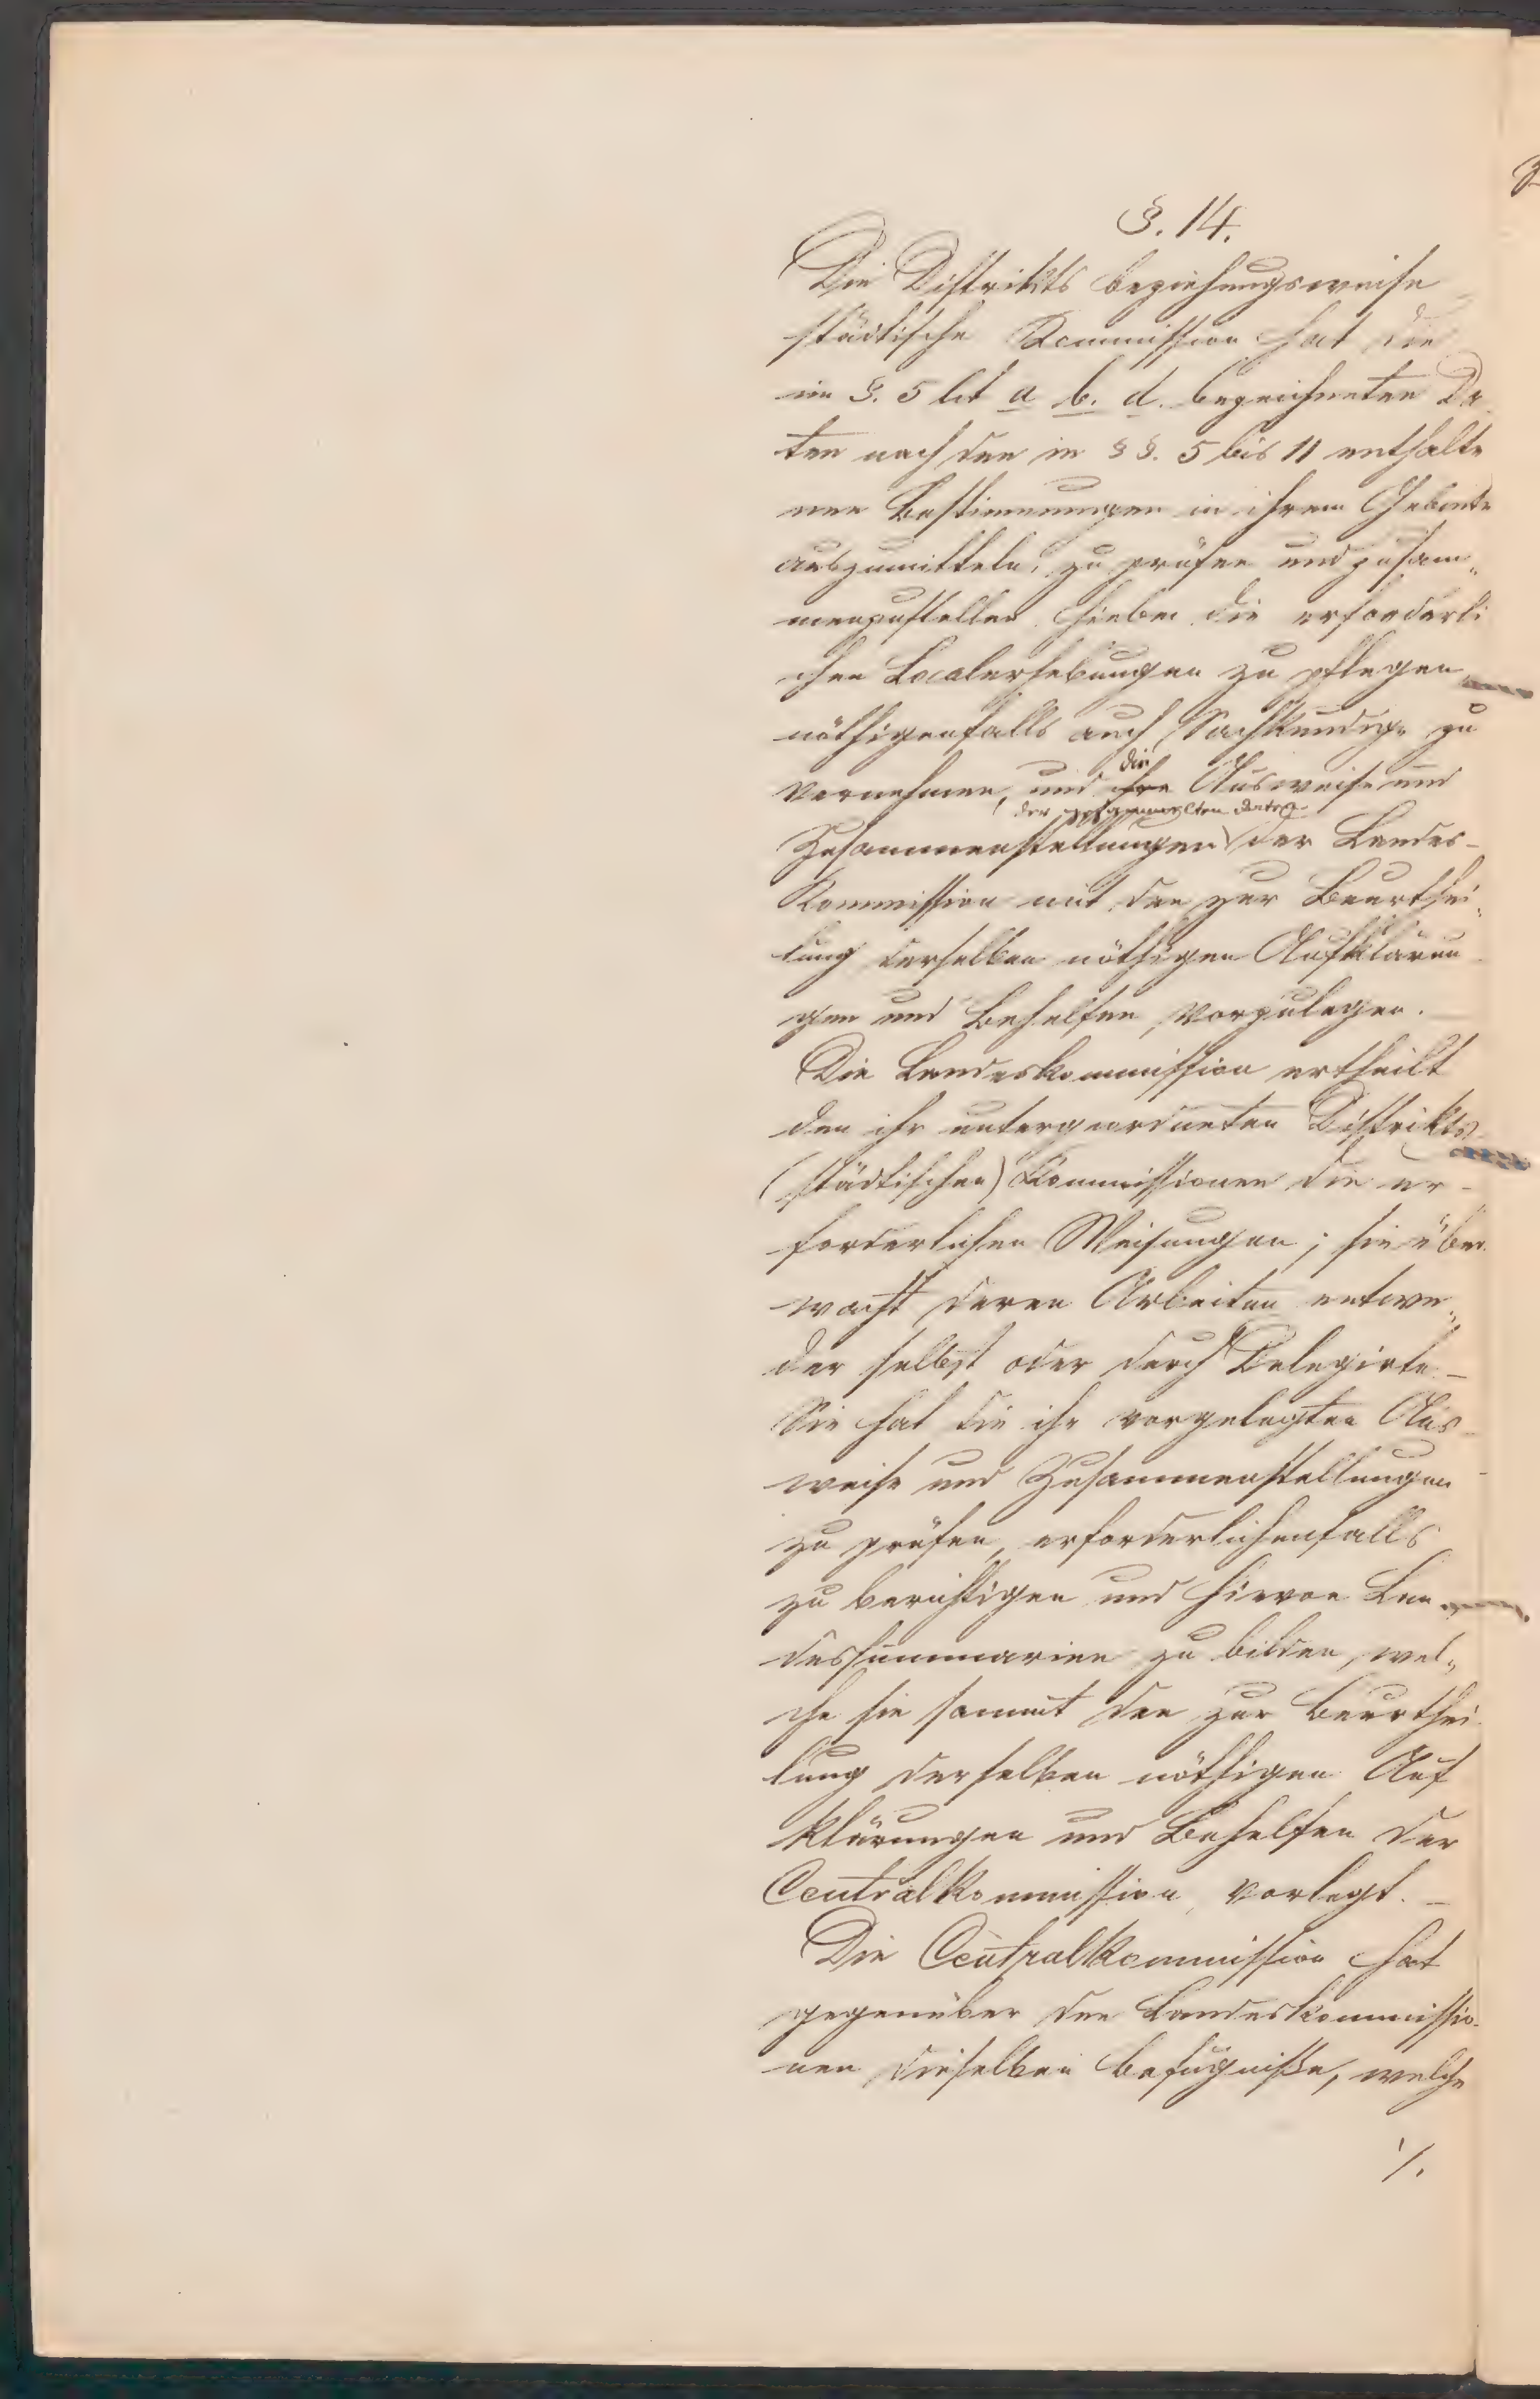 §. 14.
Die Distrikts beziehungsweise
städtische Kommission hat die
im §. 5 lit a b. d. bezeichneten Da
ten nach den in §§. 5 bis 11 enthalte
nen Bestimmungen in ihrem Gebiete
auszumitteln, zu prüfen und zusam„
menzustellen hiebei die erforderli
chen Localerhebungen zu pflegen
nöthigenfalls auch Sachkundige zu
die
vernehmen, und ihre Ausweise und
der gesammelten Daten
Zusammenstellungen der Landes-
Kommission mit den zur Beurthei„
lung derselben nöthigen Aufklärun
gen und Behelfen, vorzulegen.
Die Landeskommission ertheilt
den ihr untergeordneten Distrikts
(städtischen) Kommissionen die er-
forderlichen Weisungen; sie über
wacht deren Arbeiten entwe„
der selbst oder durch Delegirte. –
Sie hat die ihr vorgelegten Aus
weise und Zusammenstellungen
zu prüfen, erforderlichenfalls
zu berichtigen und hievon Lan
dessummarien zu bilden, wel„
che sie sammt den zur Beurthei
lung derselben nöthigen Auf
klärungen und Behelfen der
Centralkommission, vorlegt. –
Die Centralkommission hat
gegenüber den Landeskommissio-
nen dieselben Befugniße, welche
⁒